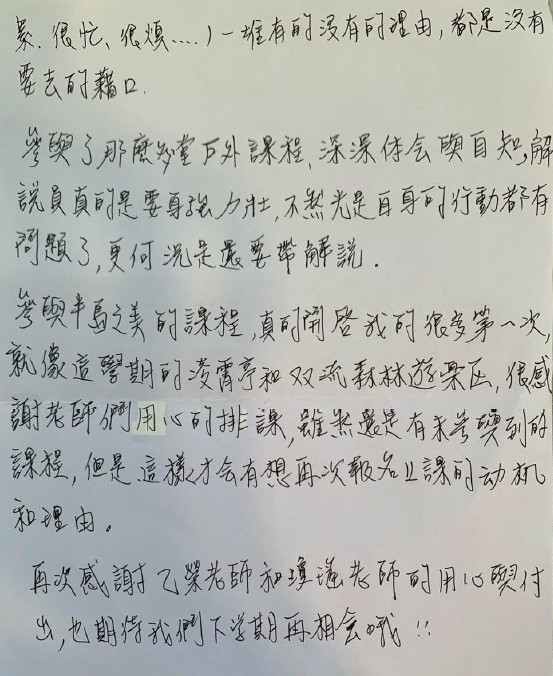 累、很忙、很煩....)一堆有的沒有的理由,都是沒有
要去的藉口.
參與了那麼多堂戶外課程,深深体会與自知,解
說員真的是要身強力壯,不然光是自身的行動都有
問題了,更何況是還要帶解說.
參與半島之美的課程,真的開啓我的很多第一次,
就像這學期的凌霄亭和双流森林遊樂区,很感
謝老師們用心的排課,雖然還是有未參與到的
課程,但是這樣才会有想再次報名上課的动机
和理由。
再次感謝乙榮老師和瓊瑤老師的用心與付
出,也期待我們下学期再相会哦!!